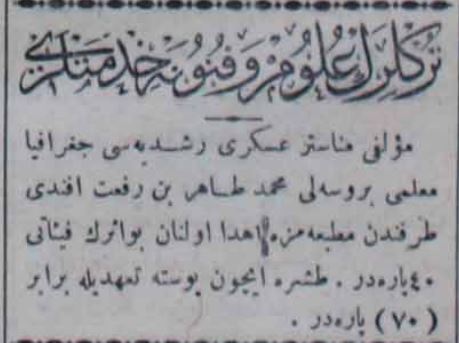 تركلرك علوم وفنونه خدمتلرى
مؤلفى مناستر عسكرى رشديه‌سى جغرافيا
معلمى بروسه‌لى محمد طاهر بن رفعت افندى
طرفندن مطبعه‌مزه اهدا اولنان بو اثرك فيئاتى
٤٠ پاره‌در . طشره ايچون پوسته تعهديله برابر
(٧٠) پاره‌در .